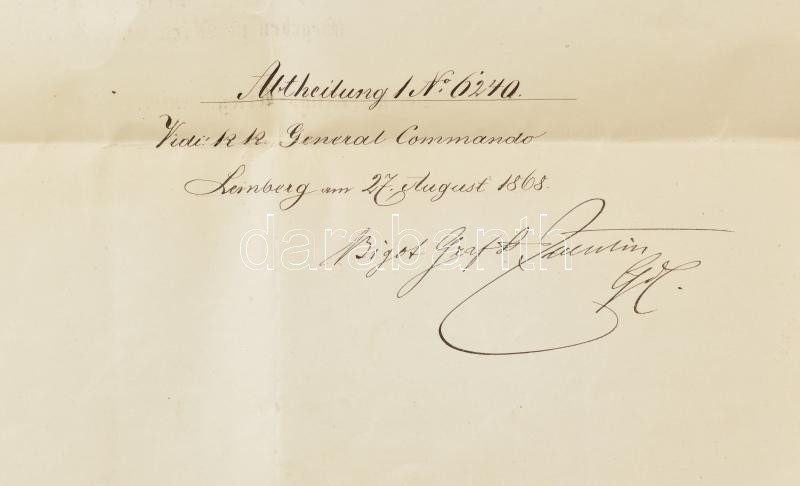 Abtheilung 1 No. 6240.
Vidi: k k. General Commando
Lemberg am 27. August 1868.
Bigot Graf St Quentin
GdC.
darabanth